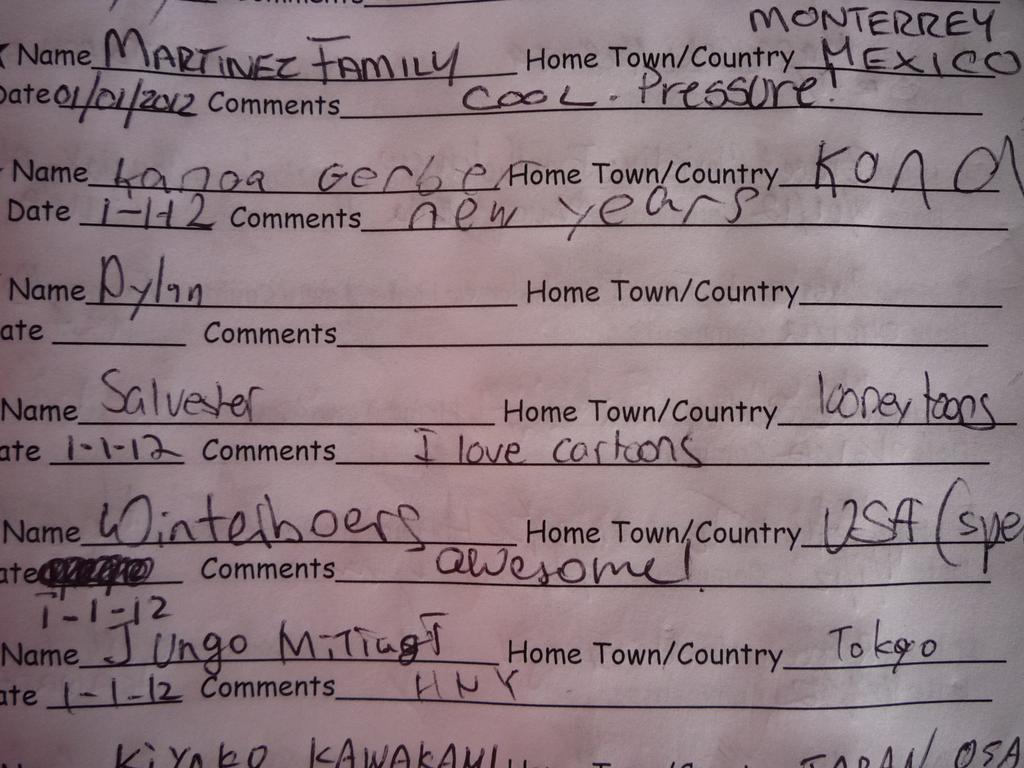 Comments
MONTERREY
Name MARTINEZ FAMILY Home Town/Country MEXICO
Date 01/01/2012 Comments COOL. Pressure!
Name Kanoa Gerber Home Town/Country KONA
Date 1-1-12 Comments new years
Name Dylan Home Town/Country
ate Comments
Name Salvester Home Town/Country looney toons
ate 1-1-12 Comments I love cartoons
Name Winterboers Home Town/Country USA (spe
ate Comments awesome!
1-1-12
Name Jungo Home Town/Country Tokyo
ate 1-1-12 Comments HNY
KiYoKO KAWAKAMI JAPAN/OSA